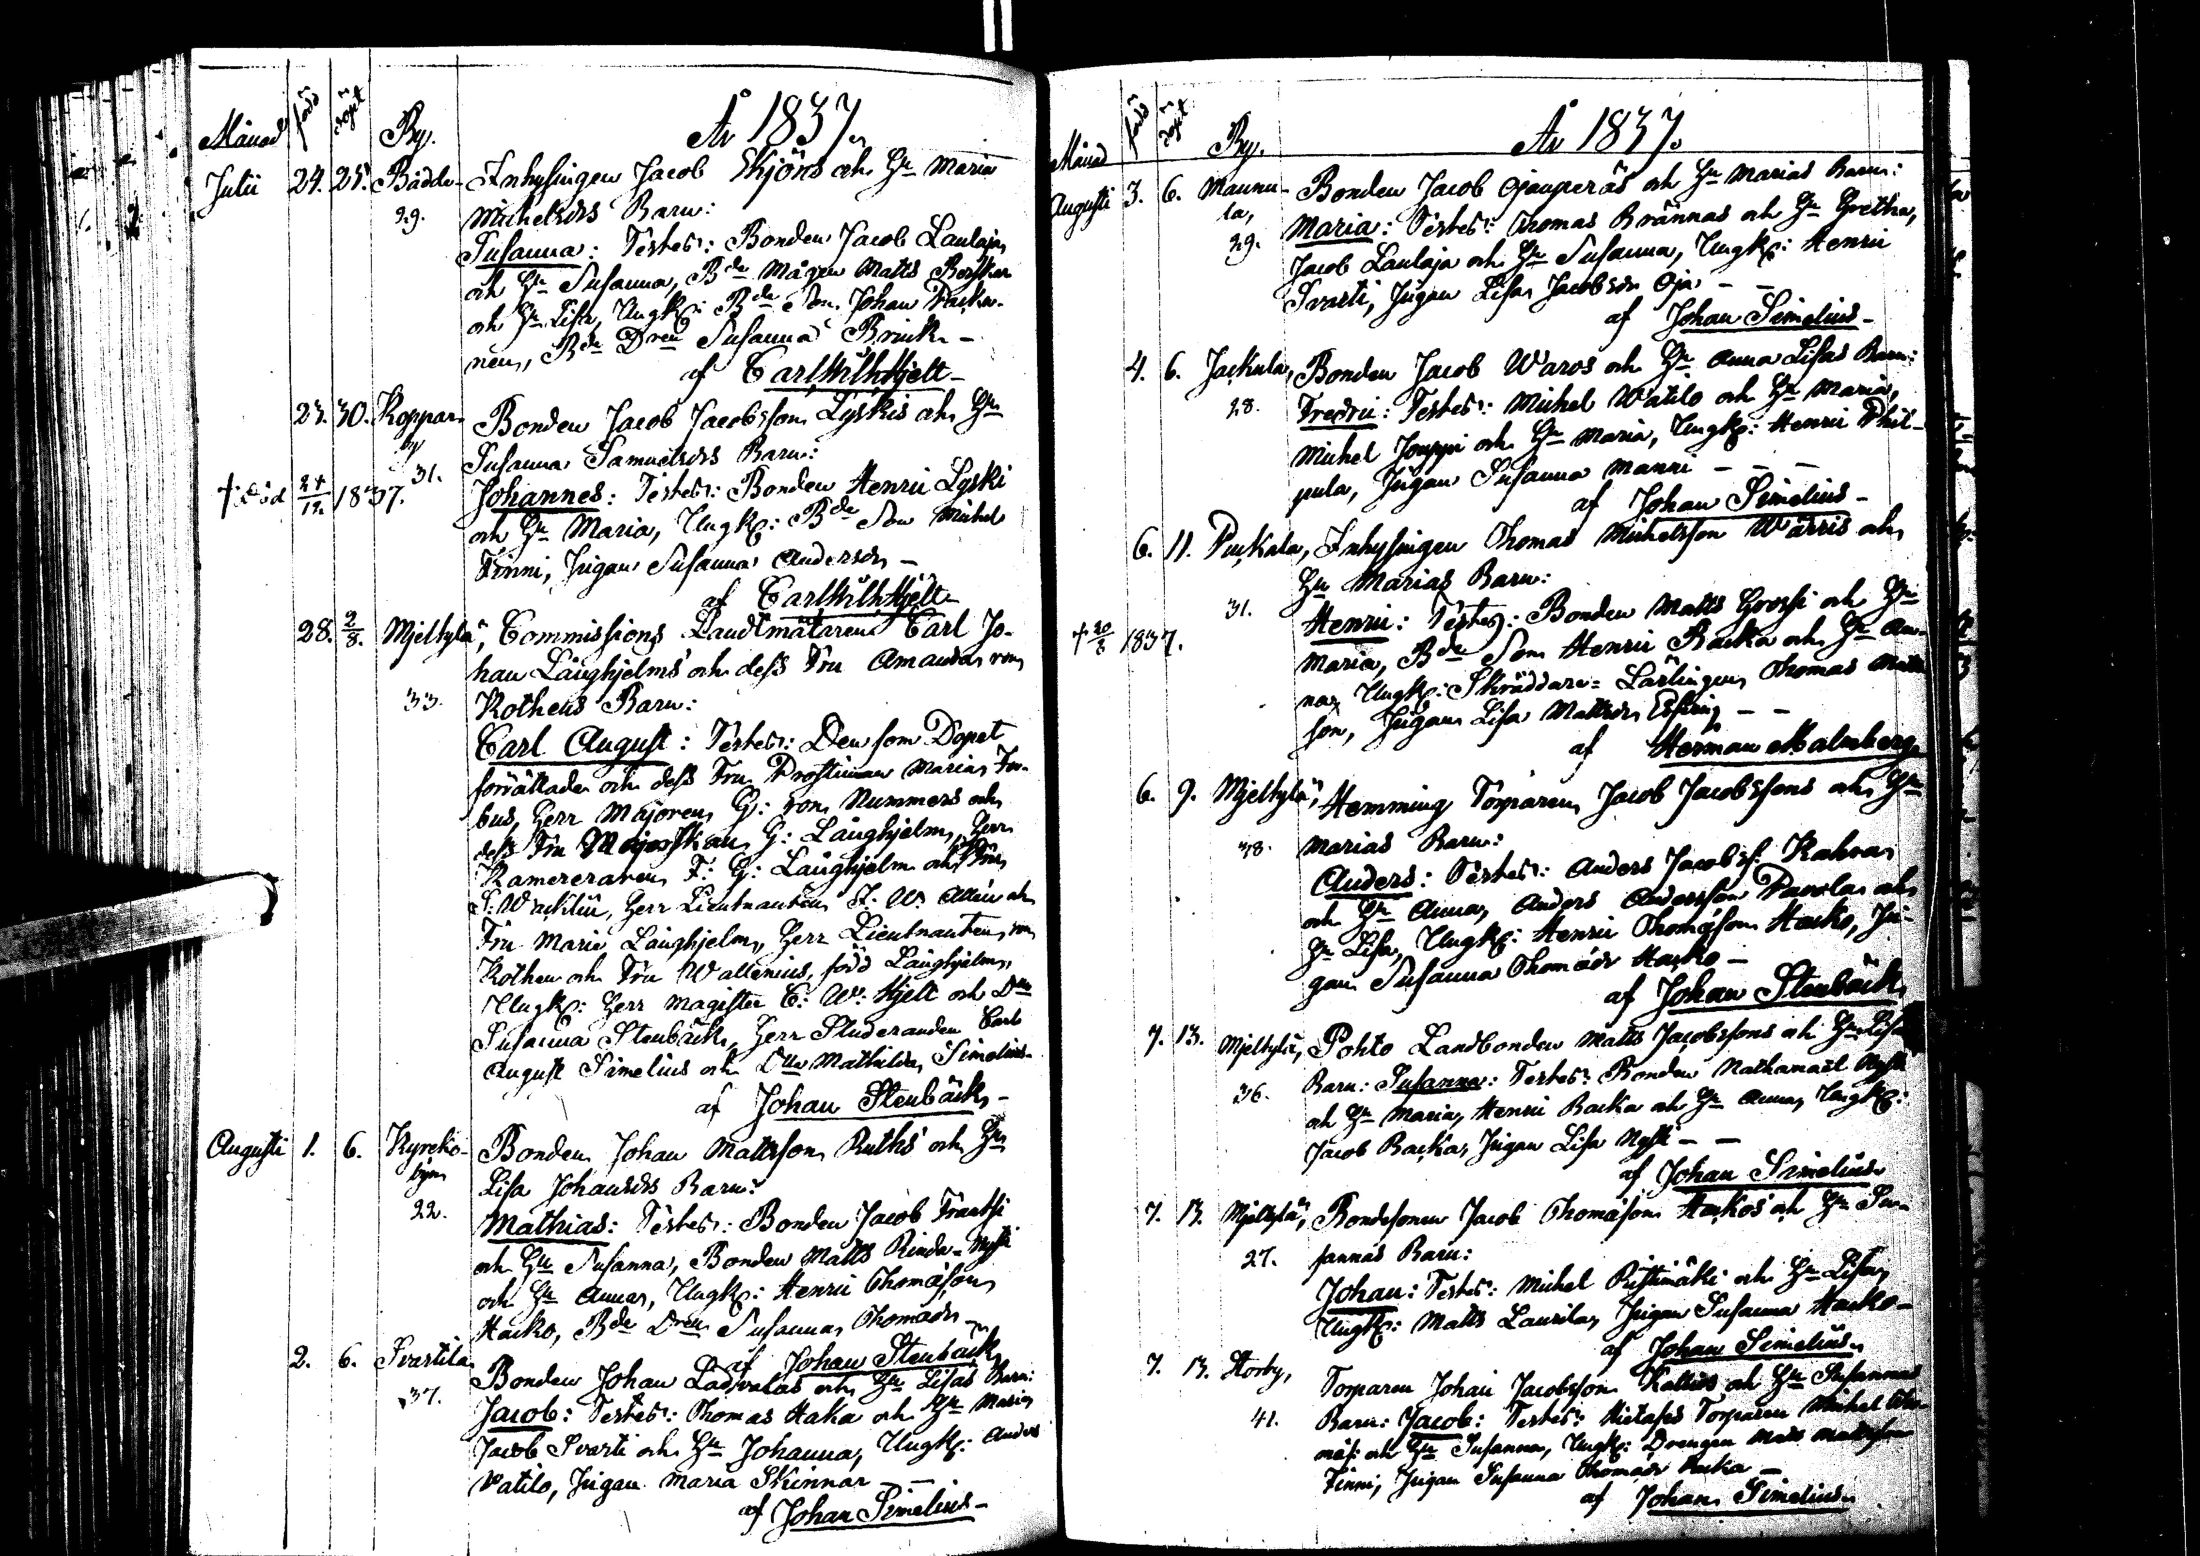 Månad född döpt By. År 1837.
Julii 24. 25. Bådda- Inhysingen Jacob Skjöns och Hu Maria
29. Michelsdrs Barn:
Susanna: Testes: Bonden Jacob Laulaja
och Hu Susanna, Bde Mågen Matts
och Hu Lisa, Ungk: Bde Son Johan Packa-
nen, Bde Dren Susanna Brink -
af Carl Wilh Hjelt -
25. 30. Koppar- Bonden Jacob Jacobsson Lyskis och Hu
by
31. Susanna Samuelsdrs Barn:
† död 24/12 1837. Johannes: Testes: Bonden Henric Lyski
och Hu Maria, Ungk: Bde Son Michel
Finni, Pigan Susanna Andersdr -
af Carl Wilh Hjelt -
28. 2/8. Mjelkylä, Commissions Landtmätaren Carl Jo-
han Långhjelms och dess Fru Amanda von
33. Kothens Barn:
Carl August: Testes: Den som Dopet
förrättade och dess Fru Prostinnan Maria For-
bus, Herr Majoren G: von Nummers och
dess Fru Majorskan G: Långhjelm, Herr
Kamereraren F: G: Långhjelm och Fru
S: Wacklin, Herr Lieutnanten St: W: och
Fru Marie Långhjelm, Herr Lieutnanten von
Kothen och Fru Wallenius, född Långhjelm,
Ungk: Herr Magister C: W: Hjelt och Dlle
Susanna Stenbäck, Herr Studeranden Carl
August Simelius och Dlle Mathilda Simelius -
af Johan Stenbäck -
Augusti 1. 6. Kyrcko- Bonden Johan Mattsson Ruths och Hu
byn
Lisa Johansdrs Barn:
22. Mathias: Testes: Bonden Jacob Frantsi
och Hu Susanna, Bonden Matts Rinda-Nysti
och Hu Anna, Ungk: Henric Thomasson
Hacko, Bde Dren Susanna Thomasdr -
af Johan Stenbäck
2. 6. Svartila Bonden Johan Ladvalas och Hu Lisas Barn:
37. Jacob: Testes: Thomas Haka och Hu Maria
Jacob Svarti och Hu Johanna, Ungk: Anders
Vatilo, Pigan Maria Skinnar - -
af Johan Simelius -
Månad född döpt By. År 1837.
Augusti 3. 6. Maunu- Bonden Jacob Ojanperäs och Hu Marias Barn:
la,
29. Maria: Testes: Thomas Brännas och Hu Gretha,
Jacob Laulaja och Hu Susanna, Ungk: Henric
Svarti, Pigan Lisa Jacobsdr Oja - -
af Johan Simelius -
4. 6. Jackula, Bonden Jacob Waros och Hu Anna Lisas Barn:
28. Fredric: Testes: Michel Watilo och Hu Maria,
Michel Jouppi och Hu Maria, Ungk: Henric Phil-
pula, Pigan Susanna Manni - - -
af Johan Simelius -
6. 11. Puckala, Inhysingen Thomas Michelsson Wärris och
Hu Marias Barn:
31. Henric: Testes: Bonden Matts Grossi och Hu
† 20/8 1837. Maria, Bde Son Henric Backa och Hu An-
na, Ungk: Skräddare-Lärlingen Thomas Matts
son, Pigan Lisa Mattsdr Esping - -
af Herman Malmberg
6. 9. Mjelkylä, Hemming Torparen Jacob Jacobssons och Hu
38. Marias Barn:
Anders: Testes: Anders Jacobss: Kahra
och Hu Anna, Anders Andersson Pavola och
Hu Lisa, Ungk: Henric Thomasson Hacko, Pi-
gan Susanna Thomasdr Hacko -
af Johan Stenbäck
7. 13. Mjelkylä, Pohto Landbonden Matts Jacobssons och Hu Lisas
36. Barn: Susanna: Testes: Bonden Nathanael Nysti
och Hu Maria, Henric Backa och Hu Anna, Ungk:
Jacob Backa, Pigan Lisa Nysti - -
af Johan Simelius
7. 13. Mjelkylä, Bondesonen Jacob Thomasson Hackos och Hu Su-
27. sannas Barn:
Johan: Testes: Michel Ristimäki och Hu Lisa,
Ungk: Matts Laurila, Pigan Susanna Hacko -
af Johan Simelius
7. 13. Storby, Torparen Johan Jacobsson och Hu Susannas
41. Barn: Jacob: Testes: Torparen Michel Tho-
mäs: och Hu Susanna, Ungk: Drengen Matts Mattsson
Finni, Pigan Susanna Thomasdr Backa -
af Johan Simelius